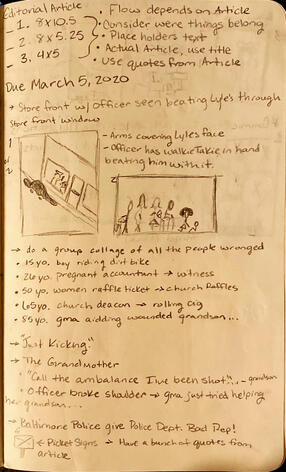 Editorial Article
• Flow depends on Article
- 1. 8x10.5
• Consider were things belong
- 2. 8x5.25
• Place holders text
- 3. 4x5
• Actual Article, use title
• Use quotes from Article
Due March 5, 2020
→ Store front w/ Officer seen beating Lyle's through
store front window
1
or
2
- Arms covering Lyles Face
- Officer has walkieTalkie in hand
beating him with it.
2
→ do a group collage of all the people wronged
• 15 yo. boy riding dirt bike
• 26 yo. pregnant accountant → witness
• 50 yo. women raffle ticket → church Raffles
• 65 yo. church deacon → rolling cig
• 85 yo. gma aidding wounded grandson...
→ "Just Kicking"
→ The Grandmother
• "Call the ambalance I've been shot"... - grandson
• Officer broke shoulder → gma just tried helping
her grandson...
→ Baltimore Police give Police Dept. Bad Rep!
← Picket Signs → Have a bunch of quotes from
article